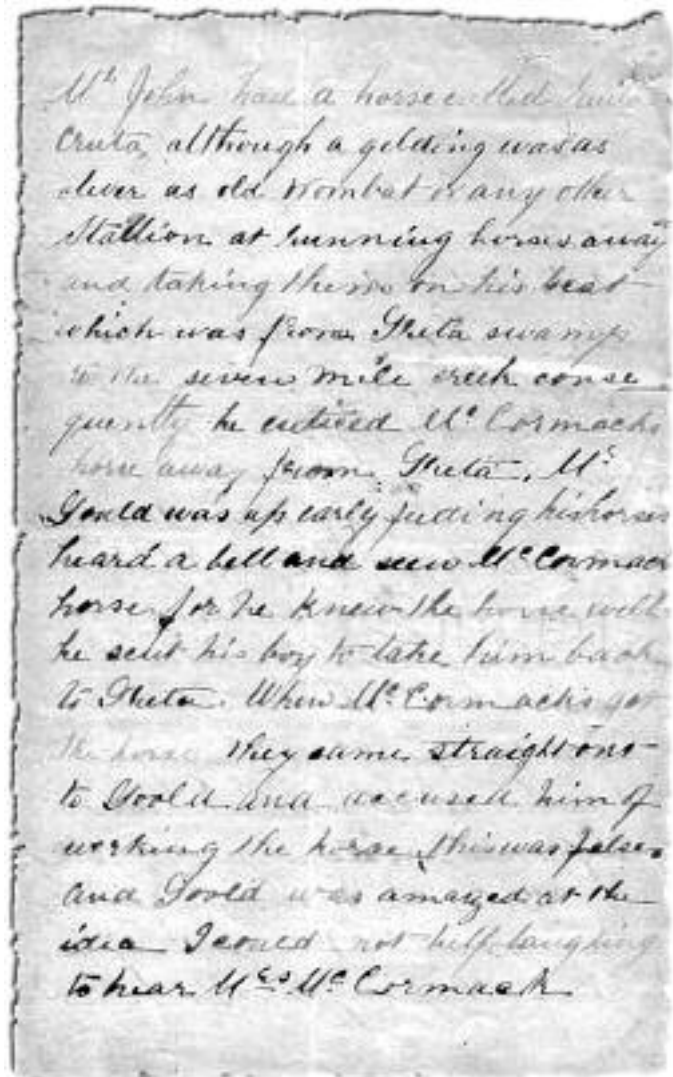 Mr John had a horse called Ruita
Cruta, although a gelding was as
clever as old Wombat or any other
Stallion at running horses away
and taking them on his beat
which was from Greta swamp
to the seven mile creek conse
quently he enticed McCormacks
horse away from Greta. Mr
Gould was up early feeding his horses
heard a bell and seen McCormack
horse for he knew the horse well
he sent his boy to take him back
to Greta. When McCormacks got
the horse they came straight out
to Goold and accused him of
working the horse, this was false,
and Goold was amazed at the
idea I could not help laughing
to hear Mrs McCormack